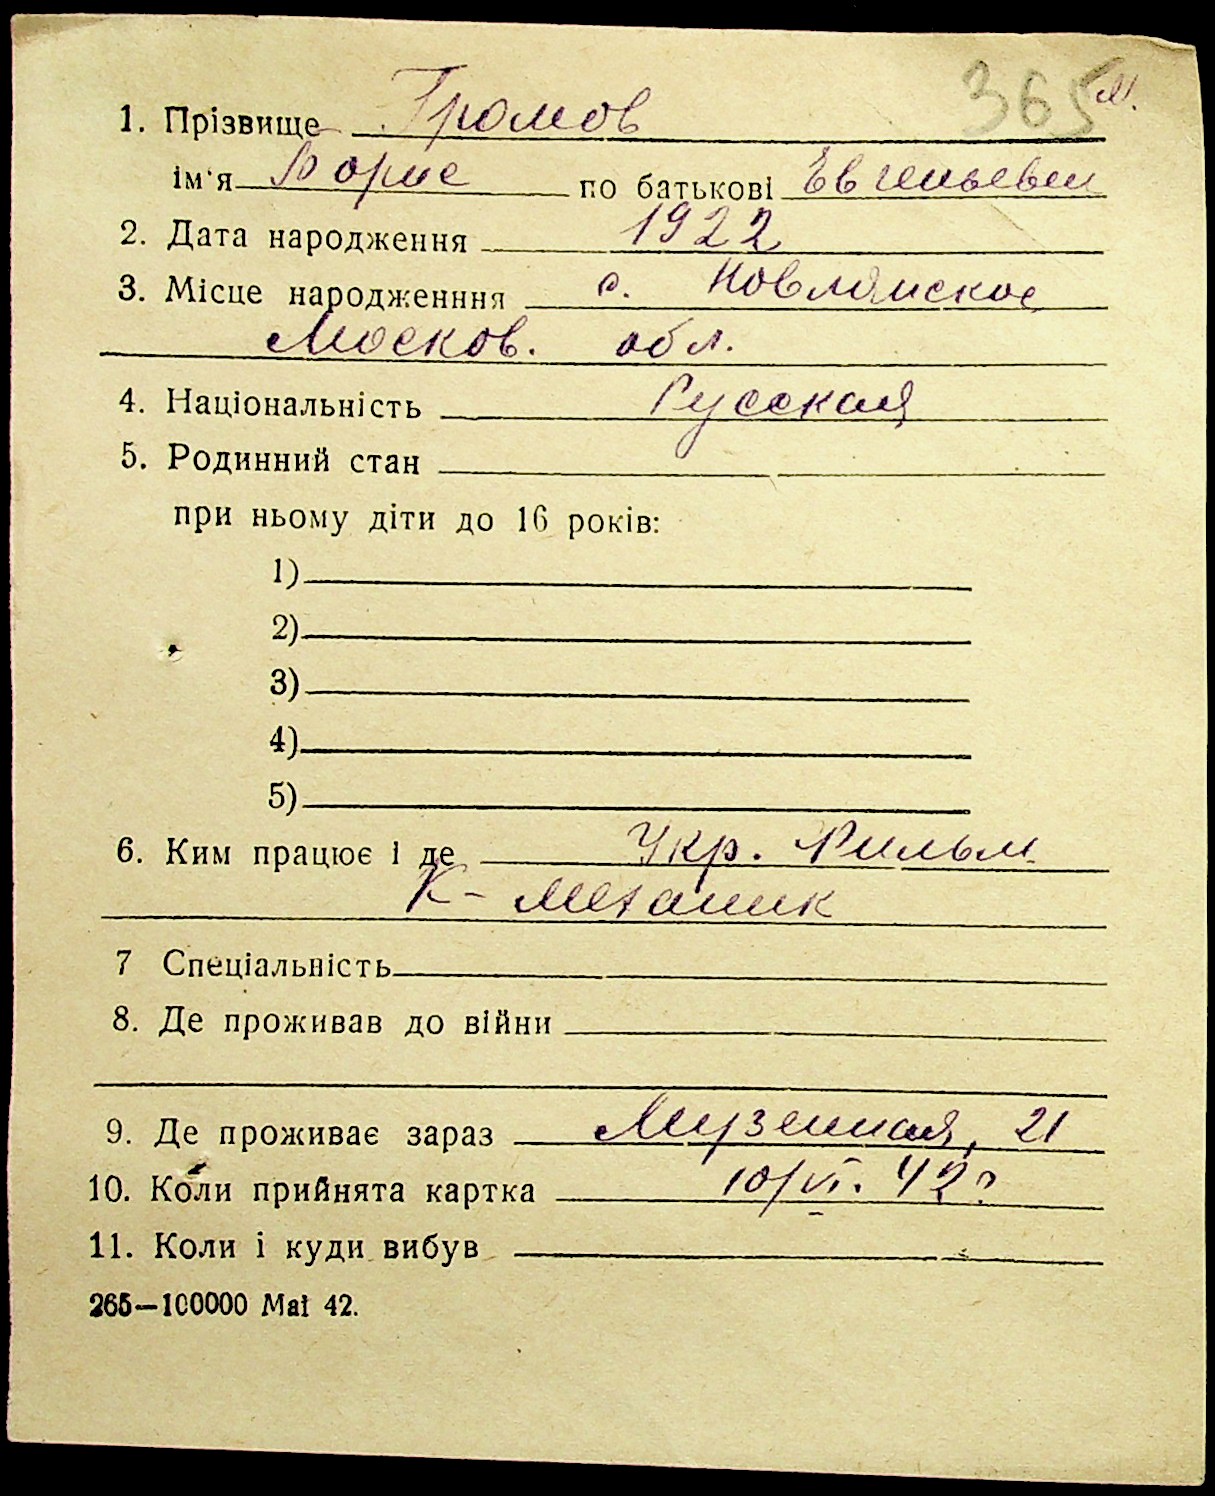 365 м.
1. Прізвище Громов
ім'я Борис по батькові Евгеньевич
2. Дата народження 1922
3. Місце народженння с. Новлянское
Москов. обл.
4. Національність Русская
5. Родинний стан
при ньому діти до 16 років:
1)
2)
3)
4)
5)
6. Ким працює і де Укр. Фильм
К-Механик
7 Спеціальність
8. Де проживав до війни
9. Де проживає зараз Музейная, 21
10. Коли прийнята картка 10/VI. 42 г
11. Коли і куди вибув
265—100000 Mai 42.